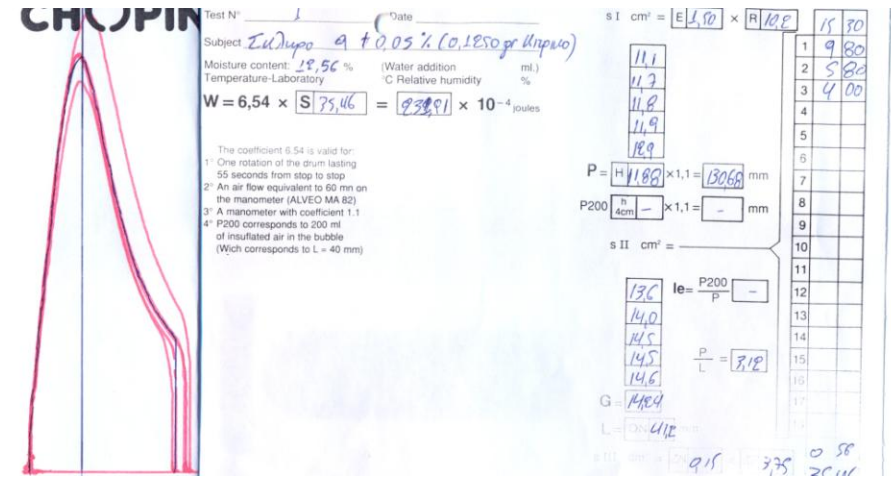 CHOPIN
Test N° 1 Date
Subject 9 + 0,05 % (0,1250 gr
Moisture content: 12,56 % (Water addition ml.)
Temperature-Laboratory °C Relative humidity %
W = 6,54 × S 35,46 = × 10⁻⁴ joules
The coefficient 6.54 is valid for:
1° One rotation of the drum lasting
55 seconds from stop to stop
2° An air flow equivalent to 60 mn on
the manometer (ALVEO MA 82)
3° A manometer with coefficient 1.1
4° P200 corresponds to 200 ml
of insuflated air in the bubble
(Wich corresponds to L = 40 mm)
s I cm² = E 1,50 × R 10,2
11,1
11,7
11,8
11,9
12,9
P = H 11,88 ×1,1 = 130,68 mm
P200 h 4cm – ×1,1 = – mm
s II cm² =
13,6
14,0
14,5
14,5
14,6
Ie= P200 / P –
P / L = 3,12
G = 14,24
L = 41,2
0,15 3,75
15 30
1 9 80
2 5 80
3 4 00
4
5
6
7
8
9
10
11
12
13
14
15
16
17
0 56